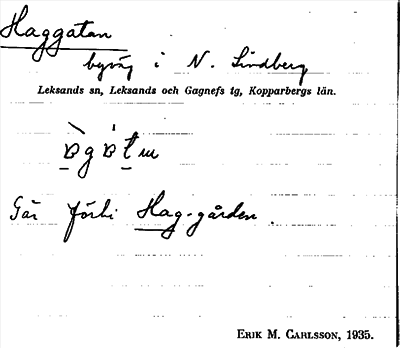 Haggatan
byväg i N. Lindberg
Leksands sn, Leksands och Gagnefs tg, Kopparbergs län.
Går förbi Hag-gården.
ERIK M. CARLSSON, 1935.